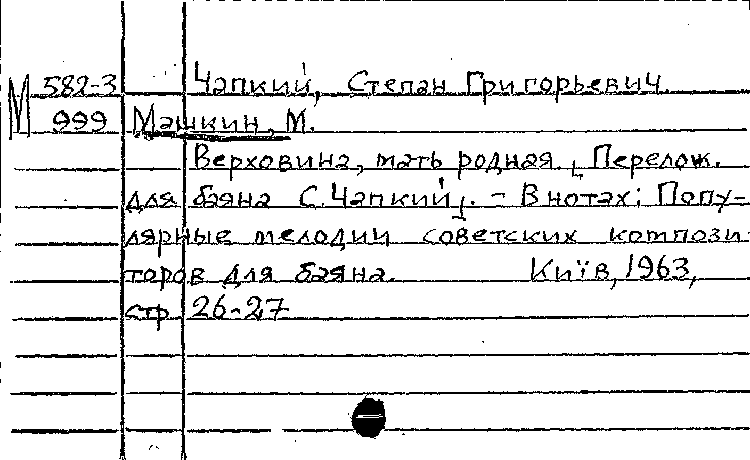 М 582-3 Чапкий, Степан Григорьевич.
999 Машкин, М.
Верховина, мать родная. [Перелож.
для баяна С. Чапкий]. - В нотах: Попу-
лярные мелодии советских компози-
торов для баяна. Київ, 1963,
стр. 26-27